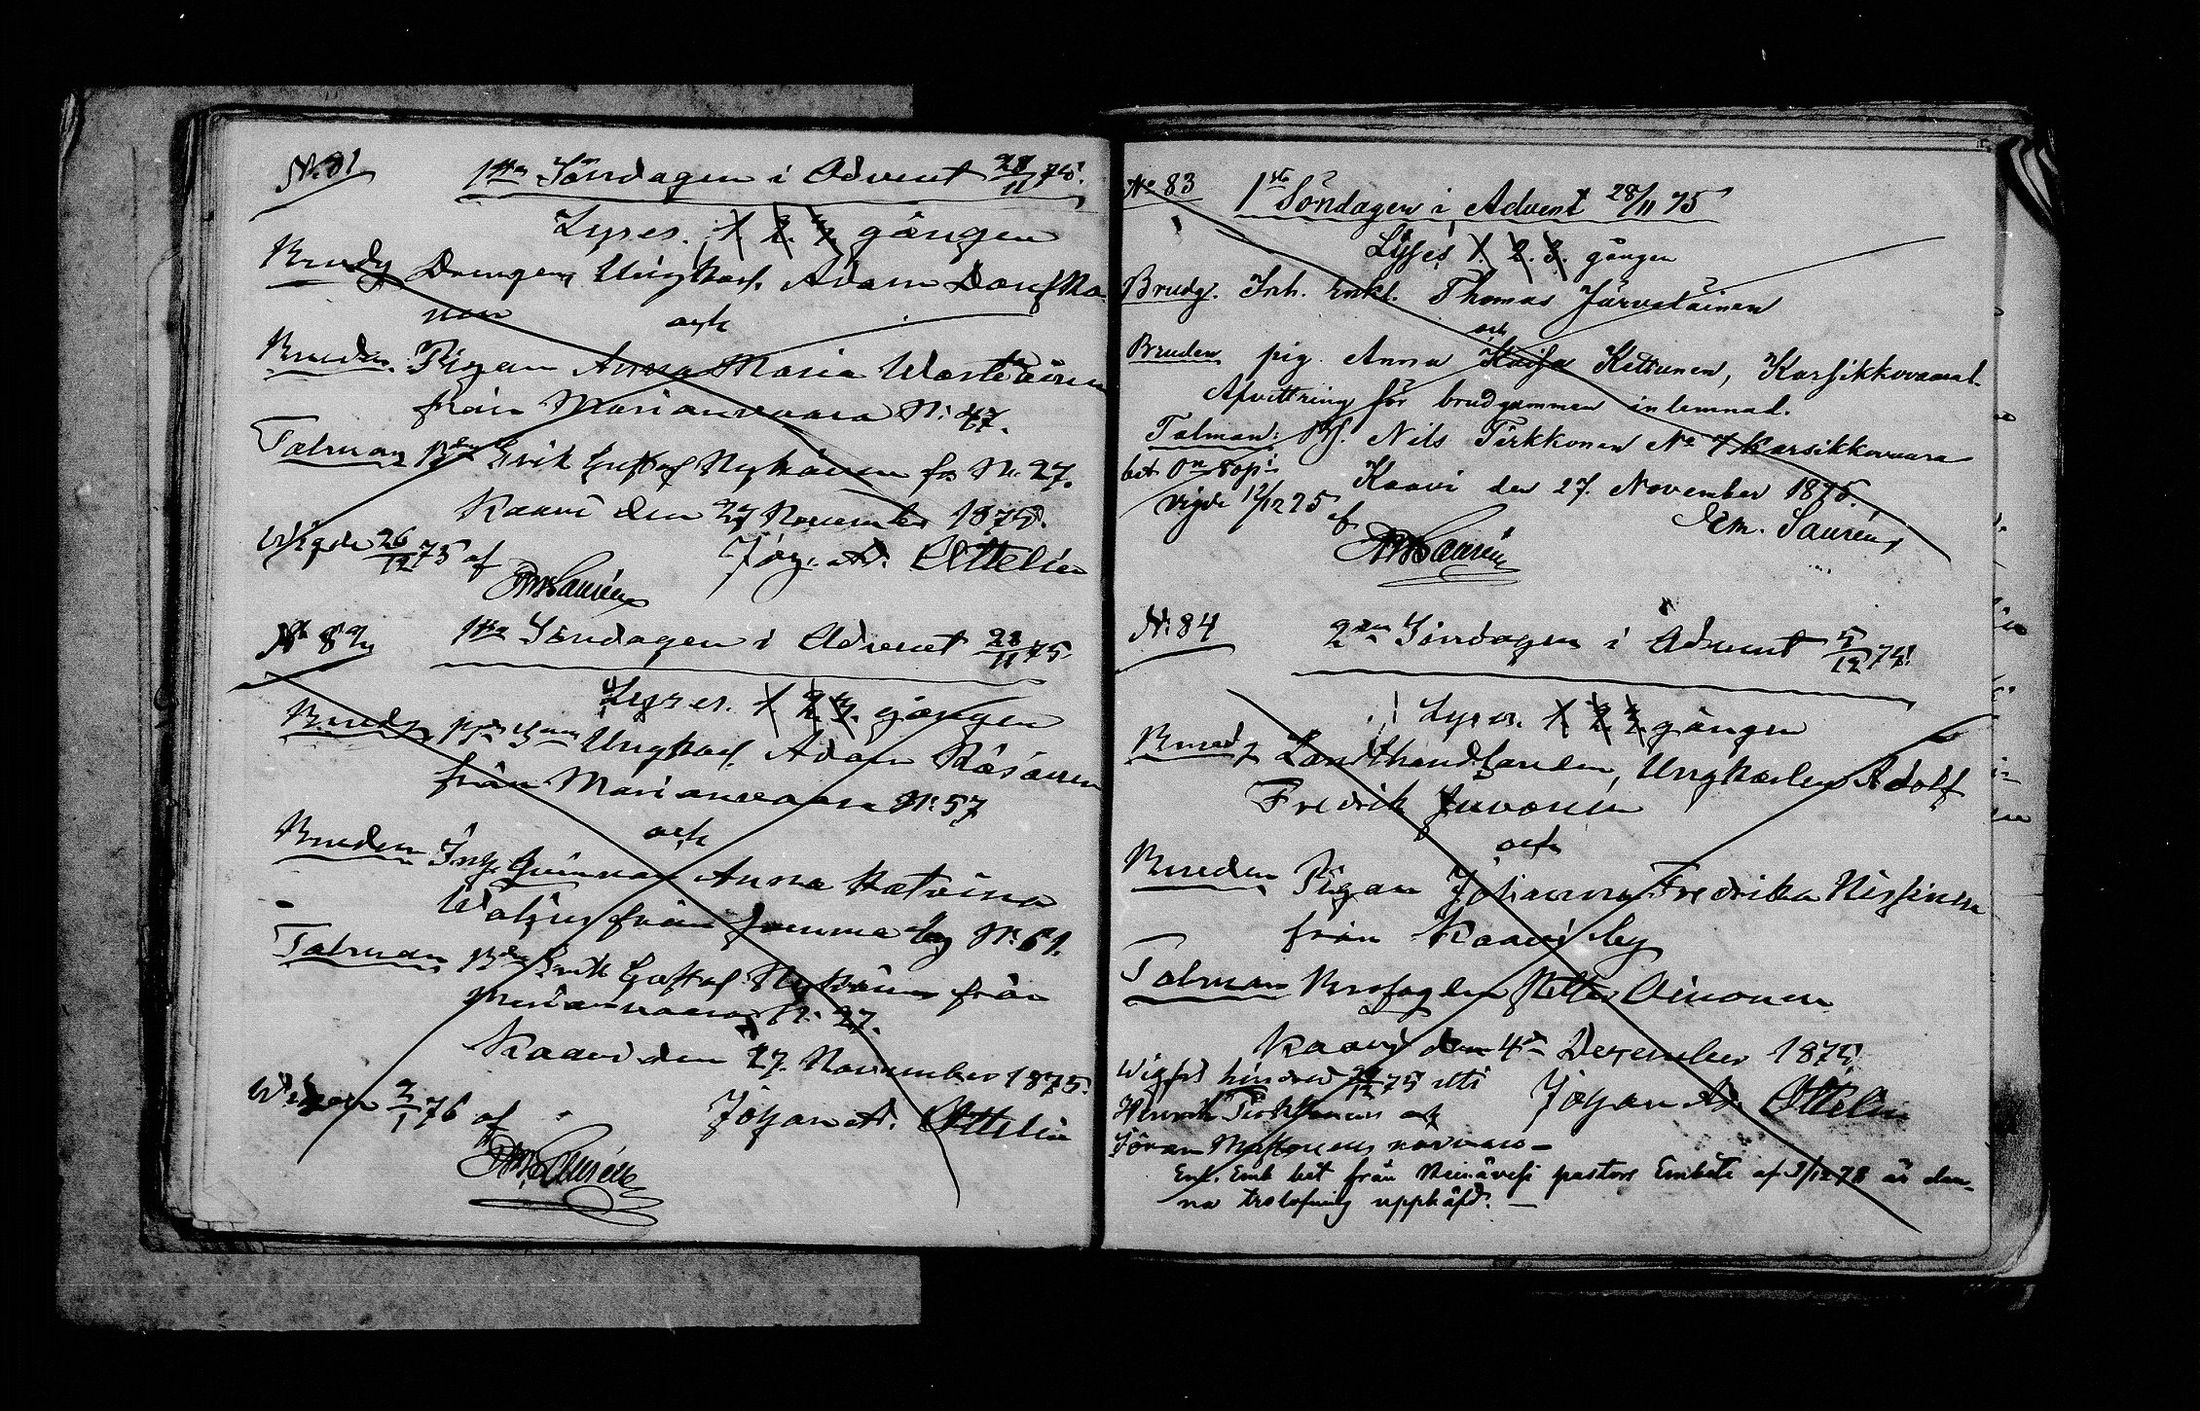 N: 81
1sta Söndagen i Advent 28/11 75.
Lyses. 1 2. 3. gången
Brudg Drengen, Ungkarl. Adam
nen
och
Bruden. Pigan Anna Maria
från Marianvaara N: 47.
Talman Bden Erik Gustaf Nykänen fr. N. 27.
Kaavi den 27 November 1875.
Wigde 26/12 75 af
Joh. Ad. Ottelin
N: 82
1sta Söndagen i Advent 28/11 75.
Lyses. 1 2 3. gången
Brudg. Ungkarl. Adam Räsänen
från Marianvaara N: 57
och
Bruden Inh. qvinnan Anna Katrina
från samma by N: 61.
Talman Bden Erik Gustaf Nykänen från
Marianvaara N: 27.
Kaavi den 27. November 1875.
Wigde 2/1 76 af
Johan Ad. Ottelin
No 83
1sta Söndagen i Advent 28/11 75
Lyses 1. 2. 3. gången
Brudg. Inh. enkl. Thomas Järveläinen
och
Bruden pig. Anna Kaisa Kettunen, Karsikkovaara
Afvittring för brudgummen inlemnad.
Talman: Nils Pirkkonen No 7 Karsikkovaara
Kaavi den 27. November 1875.
vigde 12/12 75 af
Em. Saurén
N: 84
2dra Söndagen i Advent 5/12 75.
Lyses. 1 2 3 gången
Brudg Landthandlanden, Ungkarlen Adolf
Fredrik Juvonen
och
Bruden Pigan Johanna Fredrika Nissinen
från Kaavi by
Talman Petter Ainonen
Kaavi den 4de December 1875.
75 uti
Johan Ad. Ottelin
Henrik och
Göran närvaro –
Enl. Emb. bet från pastors Embete af är den-
na trolofning upphäfd. –